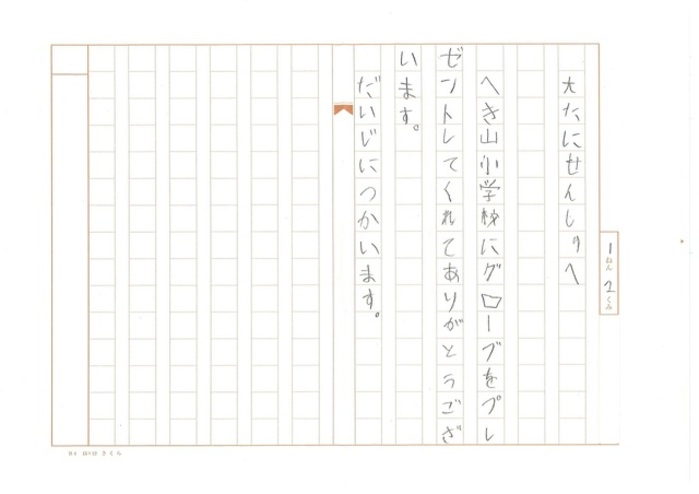 1ねん2くみ
大たにせんしゅへ
へき山小学校にグローブをプレ
ゼントしてくれてありがとうござ
います。
だいじにつかいます。